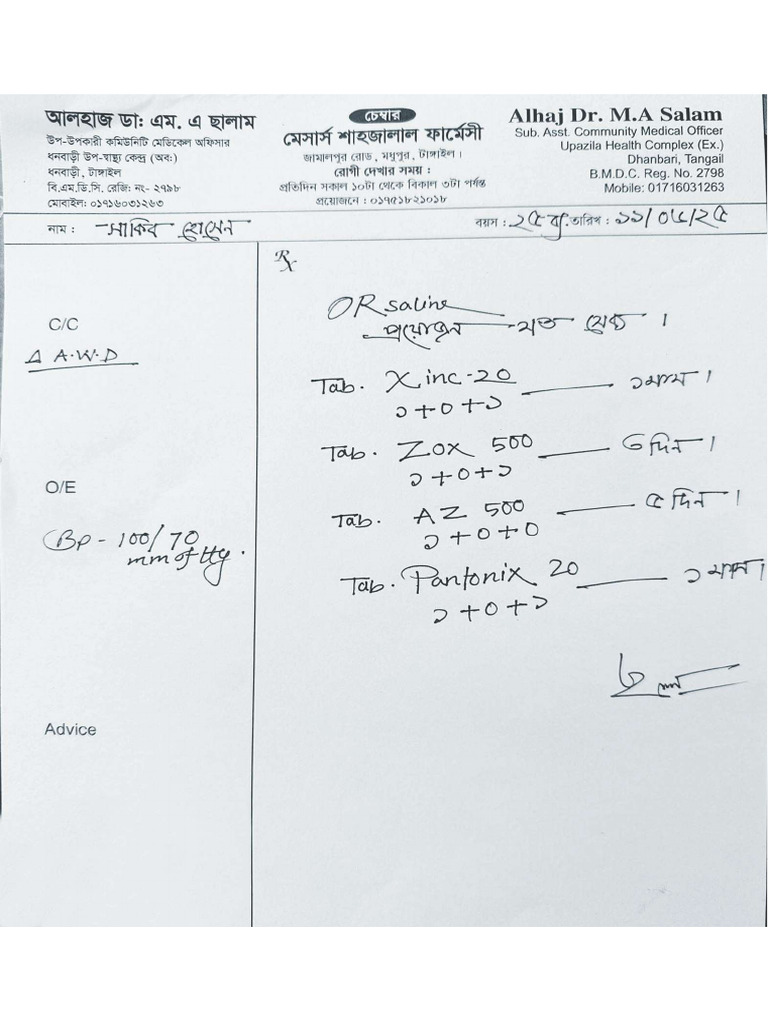 আলহাজ ডা: এম. এ ছালাম
উপ-উপকারী কমিউনিটি মেডিকেল অফিসার
ধনবাড়ী উপ-স্বাস্থ্য কেন্দ্র (অব:)
ধনবাড়ী, টাঙ্গাইল
বি.এম.ডি.সি. রেজি: নং- ২৭৯৮
মোবাইল: ০১৭১৬০৩১২৬৩
চেম্বার
মেসার্স শাহজালাল ফার্মেসী
জামালপুর রোড, মধুপুর, টাঙ্গাইল।
রোগী দেখার সময় :
প্রতিদিন সকাল ১০টা থেকে বিকাল ৩টা পর্যন্ত
প্রয়োজনে : ০১৭৫১৮২১০১৮
Alhaj Dr. M.A Salam
Sub. Asst. Community Medical Officer
Upazila Health Complex (Ex.)
Dhanbari, Tangail
B.M.D.C. Reg. No. 2798
Mobile: 01716031263
নাম : সাকিব হোসেন বয়স : ২৫ তারিখ : ১১/০৫/২৫
C/C
Δ A.W.D
O/E
BP - 100/70
mm of Hg.
Advice
Rx
OR saline
প্রয়োজন মত
Tab. Xinc-20 ১ মাস।
১+০+১
Tab. Zox 500 ৩ দিন।
১+০+১
Tab. AZ 500 ৫ দিন।
১+০+০
Tab. Pantonix 20 ১ মাস।
১+০+১